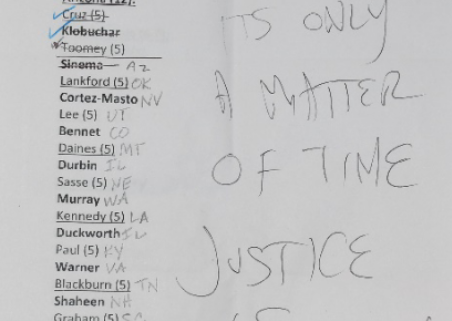 Arizona (12):
Cruz (5)
Klobuchar
Toomey (5)
Sinema AZ
Lankford (5) OK
Cortez-Masto NV
Lee (5) UT
Bennet CO
Daines (5) MT
Durbin IL
Sasse (5) NE
Murray WA
Kennedy (5) LA
Duckworth IL
Paul (5) KY
Warner VA
Blackburn (5) TN
Shaheen NH
Graham (5) SC
ITS ONLY
A MATTER
OF TIME
JUSTICE